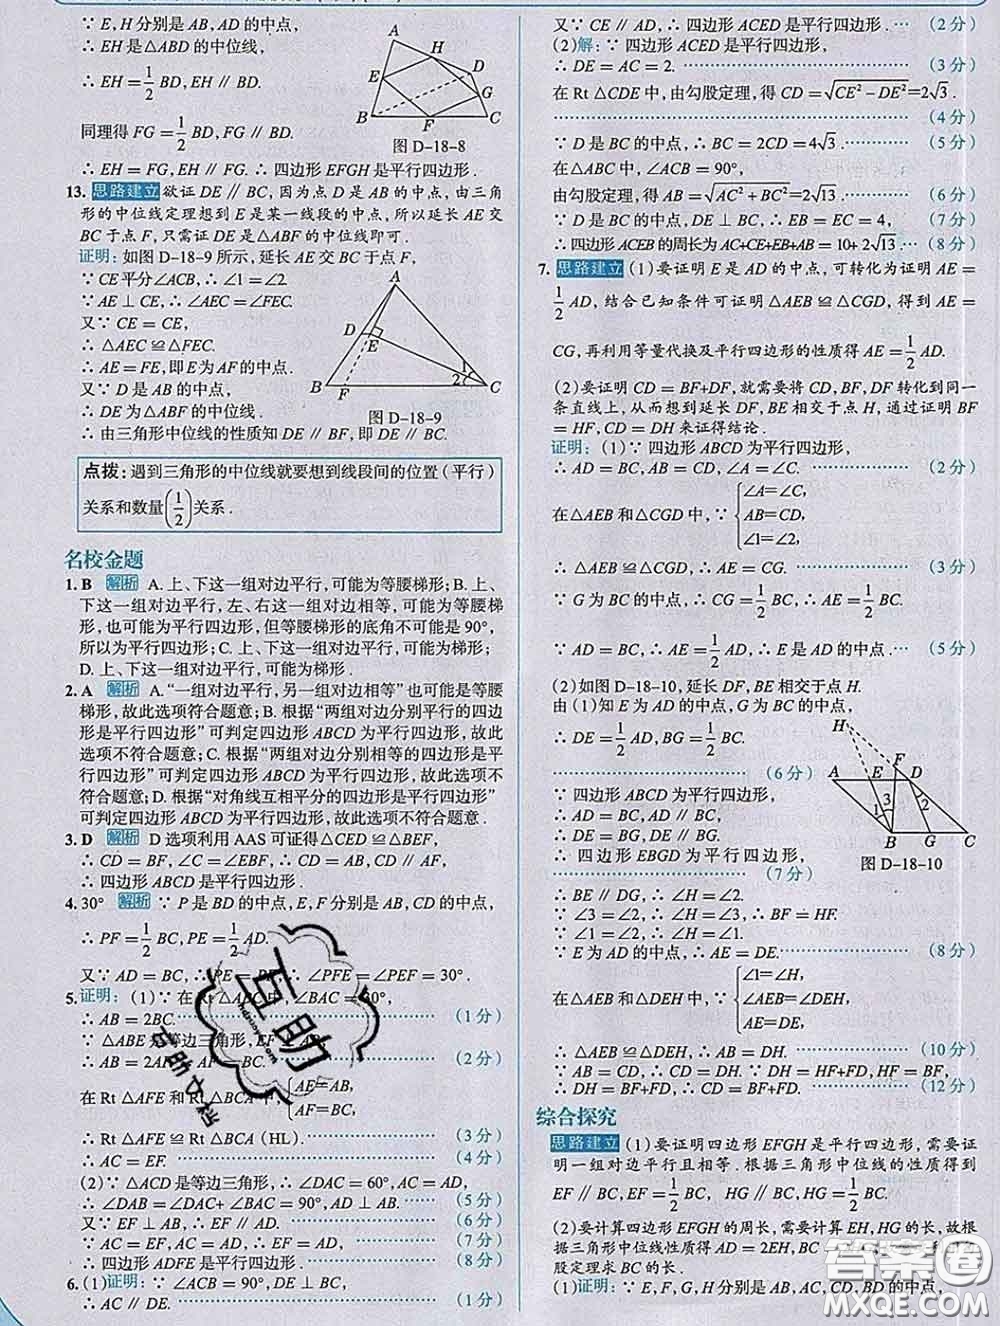 ∵ E, H 分别是 AB, AD 的中点,
∴ EH 是△ABD 的中位线.
∴ EH = 1/2 BD, EH ∥ BD.
同理得 FG = 1/2 BD, FG ∥ BD.
∴ EH = FG, EH ∥ FG. ∴ 四边形 EFGH 是平行四边形.
A
H
D
E
G
B
F
C
图 D-18-8
13. 思路建立 欲证 DE ∥ BC, 因为点 D 是 AB 的中点, 由三角
形的中位线定理想到 E 是某一线段的中点, 所以延长 AE 交
BC 于点 F, 只需证 DE 是△ABF 的中位线即可.
证明: 如图 D-18-9 所示, 延长 AE 交 BC 于点 F,
∵ CE 平分∠ACB, ∴ ∠1 = ∠2.
∵ AE ⊥ CE, ∴ ∠AEC = ∠FEC.
又∵ CE = CE,
∴ △AEC ≌ △FEC.
∴ AE = FE, 即 E 为 AF 的中点.
又∵ D 是 AB 的中点,
∴ DE 为△ABF 的中位线.
∴ 由三角形中位线的性质知 DE ∥ BF, 即 DE ∥ BC.
A
D
E
1
2
B
F
C
图 D-18-9
点拨: 遇到三角形的中位线就要想到线段间的位置(平行)
关系和数量(1/2)关系.
名校金题
1. B 解析 A. 上、下这一组对边平行, 可能为等腰梯形; B. 上、
下这一组对边平行, 左、右这一组对边相等, 可能为等腰梯
形, 也可能为平行四边形, 但等腰梯形的底角不可能是 90°,
所以为平行四边形; C. 上、下这一组对边平行, 可能为梯形;
D. 上、下这一组对边平行, 可能为梯形.
2. A 解析 A. “一组对边平行, 另一组对边相等”也可能是等腰
梯形, 故此选项符合题意; B. 根据“两组对边分别平行的四边
形是平行四边形”可判定四边形 ABCD 为平行四边形, 故此
选项不符合题意; C. 根据“两组对边分别相等的四边形是平
行四边形”可判定四边形 ABCD 为平行四边形, 故此选项不
符合题意; D. 根据“对角线互相平分的四边形是平行四边形”
可判定四边形 ABCD 为平行四边形, 故此选项不符合题意.
3. D 解析 D 选项利用 AAS 可证得△CED ≌ △BEF,
∴ CD = BF, ∠C = ∠EBF, ∴ CD = AB, CD ∥ AF,
∴ 四边形 ABCD 是平行四边形.
4. 30° 解析 ∵ P 是 BD 的中点, E, F 分别是 AB, CD 的中点,
∴ PF = 1/2 BC, PE = 1/2 AD.
又∵ AD = BC, ∴ PE = PF, ∴ ∠PFE = ∠PEF = 30°.
5. 证明: (1)∵ 在 Rt △ABC 中, ∠BAC = 30°,
∴ AB = 2BC. (1 分)
∵ △ABE 是等边三角形, EF ⊥ AB,
∴ AB = 2AF, ∴ AF = BC. (2 分)
在 Rt △AFE 和 Rt △BCA 中, { AE = AB, AF = BC,
∴ Rt △AFE ≌ Rt △BCA (HL). (3 分)
∴ AC = EF. (4 分)
(2)∵ △ACD 是等边三角形, ∴ ∠DAC = 60°, AC = AD,
∴ ∠DAB = ∠DAC + ∠BAC = 90°, AD ⊥ AB. (5 分)
又∵ EF ⊥ AB, ∴ EF ∥ AD. (6 分)
∵ AC = EF, AC = AD, ∴ EF = AD. (7 分)
∴ 四边形 ADFE 是平行四边形. (8 分)
6. (1)证明: ∵ ∠ACB = 90°, DE ⊥ BC,
∴ AC ∥ DE. (1 分)
又∵ CE ∥ AD, ∴ 四边形 ACED 是平行四边形. (2 分)
(2)解: ∵ 四边形 ACED 是平行四边形,
∴ DE = AC = 2. (3 分)
在 Rt △CDE 中, 由勾股定理, 得 CD = √(CE² − DE²) = 2√3.
(4 分)
∵ D 是 BC 的中点, ∴ BC = 2CD = 4√3. (5 分)
在△ABC 中, ∠ACB = 90°,
由勾股定理, 得 AB = √(AC² + BC²) = 2√13. (6 分)
∵ D 是 BC 的中点, DE ⊥ BC, ∴ EB = EC = 4, (7 分)
∴ 四边形 ACEB 的周长为 AC+CE+EB+AB = 10+ 2√13. (8 分)
7. 思路建立 (1) 要证明 E 是 AD 的中点, 可转化为证明 AE =
1/2 AD, 结合已知条件可证明△AEB ≌ △CGD, 得到 AE =
CG, 再利用等量代换及平行四边形的性质得 AE = 1/2 AD.
(2) 要证明 CD = BF+DF, 就需要将 CD, BF, DF 转化到同一
条直线上, 从而想到延长 DF, BE 相交于点 H, 通过证明 BF
= HF, CD = DH 来证得结论.
证明: (1)∵ 四边形 ABCD 为平行四边形,
∴ AD = BC, AB = CD, ∠A = ∠C. (2 分)
在△AEB 和△CGD 中, ∵ { ∠A = ∠C, AB = CD, ∠1 = ∠2,
∴ △AEB ≌ △CGD, ∴ AE = CG. (3 分)
∵ G 为 BC 的中点, ∴ CG = 1/2 BC, ∴ AE = 1/2 BC.
∵ AD = BC, ∴ AE = 1/2 AD, ∴ E 是 AD 的中点. (5 分)
(2) 如图 D-18-10, 延长 DF, BE 相交于点 H.
由 (1) 知 E 为 AD 的中点, G 为 BC 的中点,
∴ DE = 1/2 AD, BG = 1/2 BC.
(6 分)
∵ 四边形 ABCD 为平行四边形,
∴ AD = BC, AD ∥ BC.
∴ DE = BG, DE ∥ BG.
∴ 四边形 EBGD 为平行四边形,
(7 分)
H
F
A
E
D
3
1
2
B
G
C
图 D-18-10
∴ BE ∥ DG, ∴ ∠H = ∠2.
∵ ∠3 = ∠2, ∴ ∠H = ∠3, ∴ BF = HF.
∵ ∠1 = ∠2, ∴ ∠H = ∠1.
∵ E 为 AD 的中点, ∴ AE = DE. (8 分)
在△AEB 和△DEH 中, ∵ { ∠1 = ∠H, ∠AEB = ∠DEH, AE = DE,
∴ △AEB ≌ △DEH, ∴ AB = DH. (10 分)
∵ AB = CD, ∴ CD = DH. ∵ DH = HF+FD, HF = BF,
∴ DH = BF+FD, ∴ CD = BF+FD. (12 分)
综合探究
思路建立 (1) 要证明四边形 EFGH 是平行四边形, 需要证
明一组对边平行且相等. 根据三角形中位线的性质得到
EF ∥ BC, EF = 1/2 BC, HG ∥ BC, HG = 1/2 BC.
(2) 要计算四边形 EFGH 的周长, 需要计算 EH, HG 的长, 故根
据三角形中位线性质得 AD = 2EH, BC
股定理求 BC 的长.
(1) 证明: ∵ E, F, G, H 分别是 AB, AC, CD, BD 的中点,
互助
答案圈
MXQE.COM